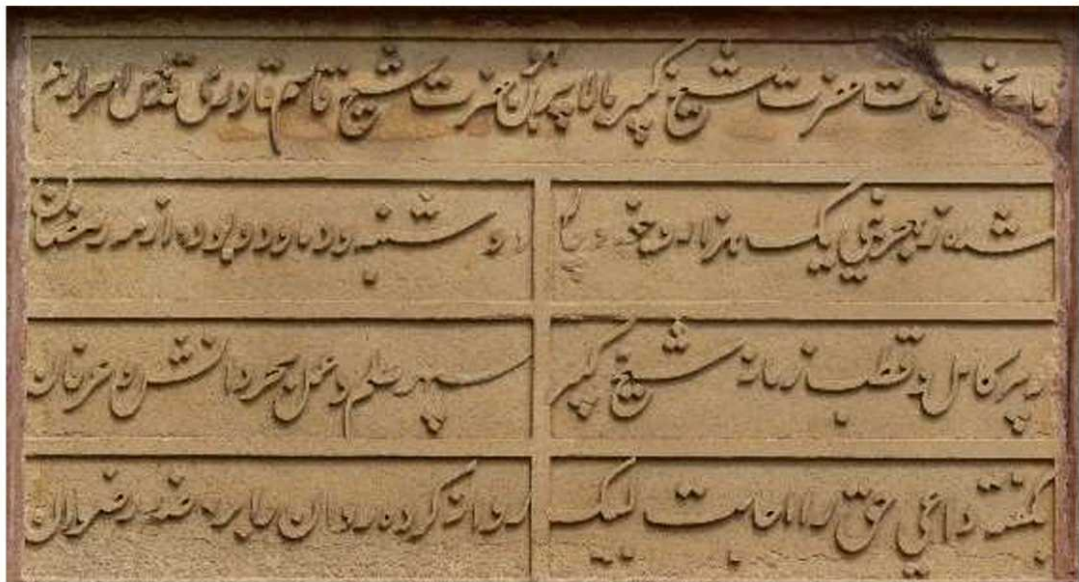 تاریخ وفات حضرت شیخ کبیر بالا پیر بن حضرت شیخ قاسم قادری قدس اسرارهم
شده ز هجر نبی یک هزار و
دوشنبه بود و دو از مه رمضان
پیر کامل و قطب زمانه شیخ کبیر
سپهر علم و عمل بحر دانش و عرفان
بگفته داعی حق را اجابت لبیک
روانه کرده روان را بروضه رضوان